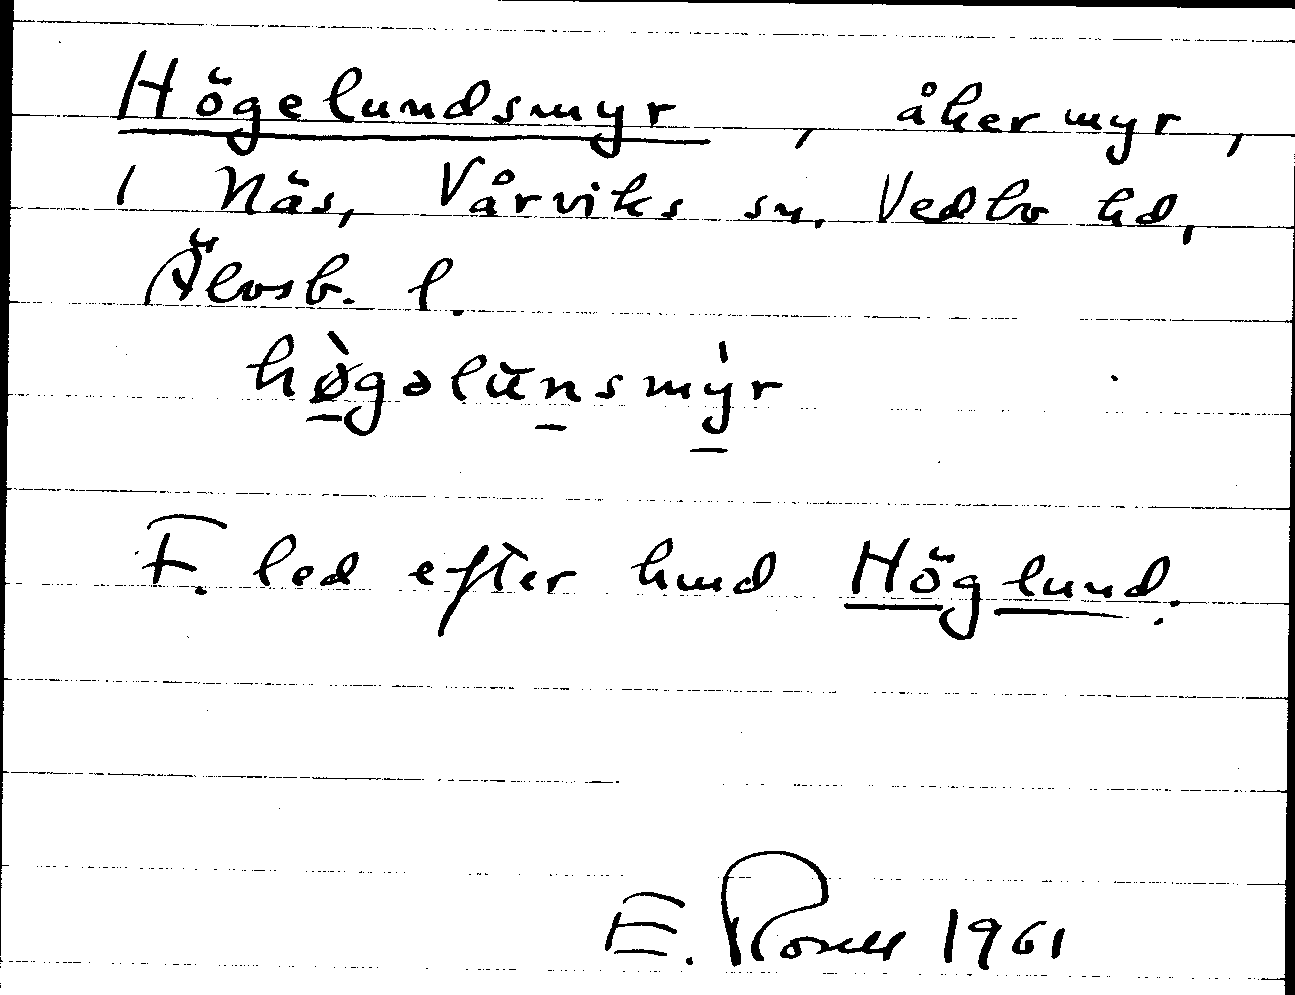 Högelundsmyr, åkermyr,
i Näs, Vårviks sn. Vedbo hd,
Älvsb. l.
hø̀gəlŭnsmy̍r
F. led efter hmd Höglund.
E. 1961